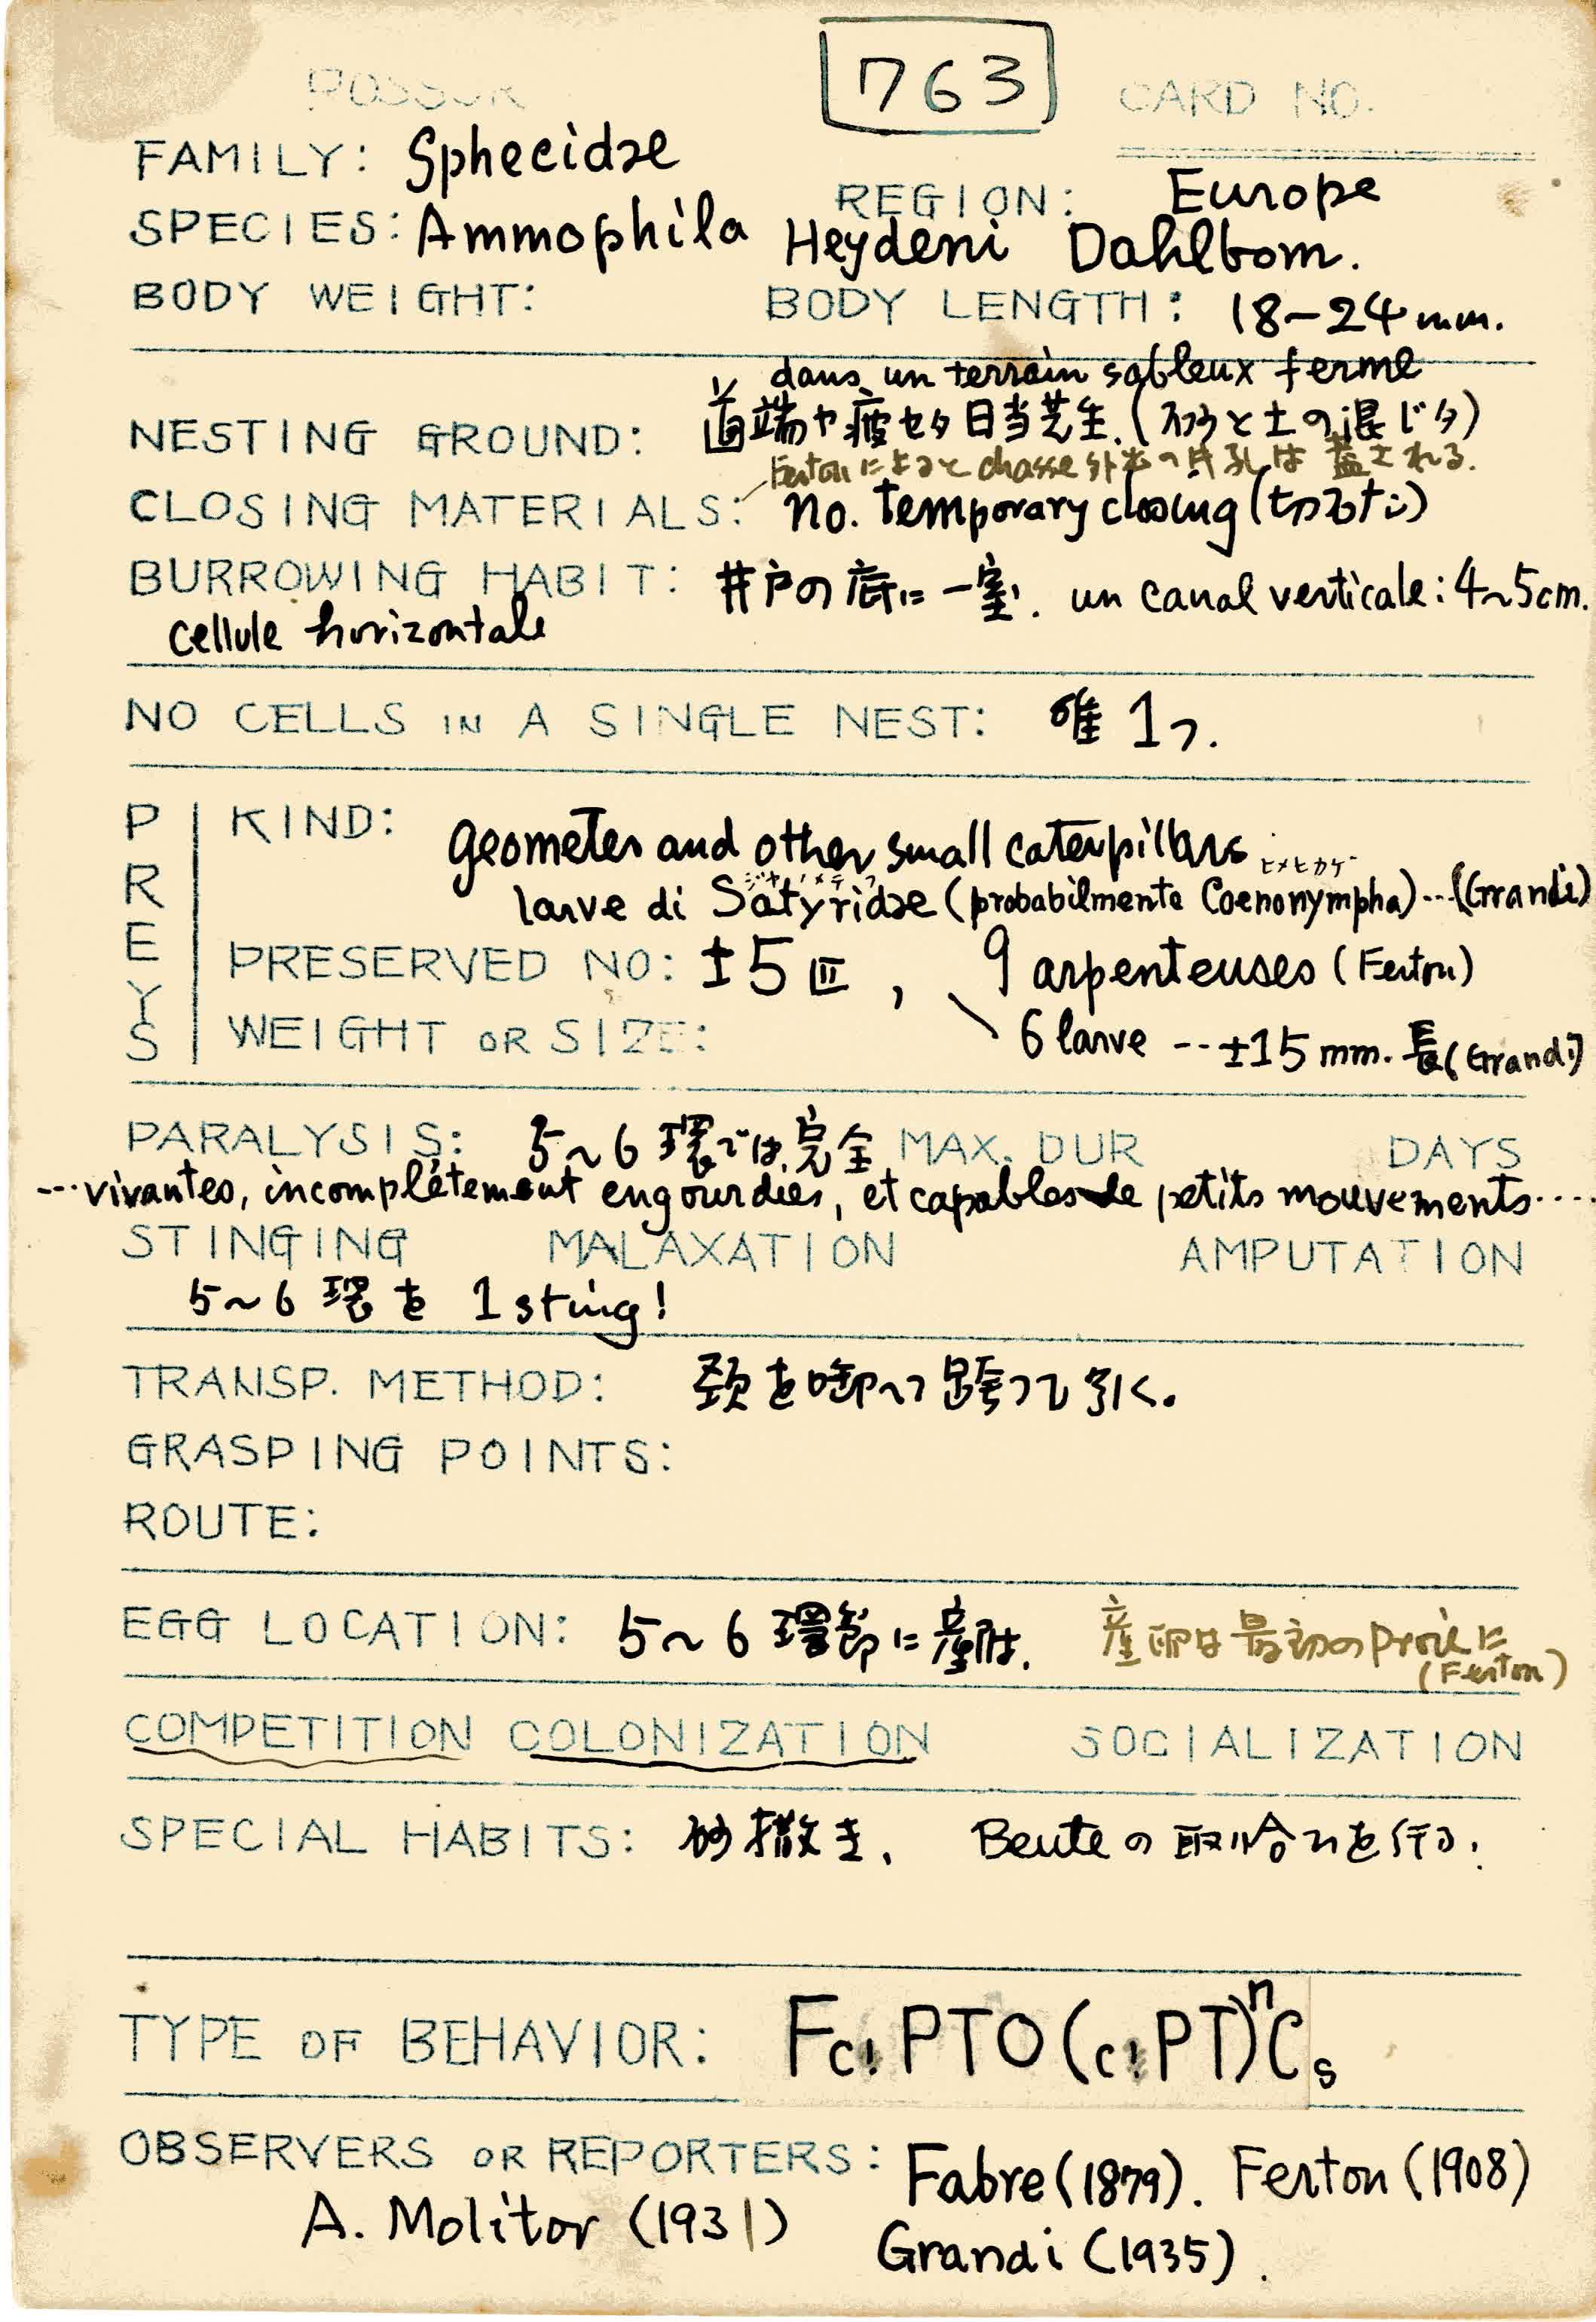 763 CARD NO.
FAMILY: Sphecidae
REGION: Europe
SPECIES: Ammophila Heydeni Dahlbom.
BODY WEIGHT: BODY LENGTH: 18-24 mm.
dans un terrain sableux ferme
NESTING GROUND: 道端ヤ疲セタ日当芝生.(砂と土の混じタ)
Fertonによると chasse 外出の时孔は蓋される.
CLOSING MATERIALS: no. temporary closing
BURROWING HABIT: 井戸の底に一室. un canal verticale: 4~5cm.
cellule horizontale
NO CELLS IN A SINGLE NEST: 唯1つ.
PREYS
KIND: geometer and other small caterpillars
ヒメヒカゲ
ジャノメテフ
larve di Satyridae (probabilmente Coenonympha)...(Grandi)
PRESERVED NO: ±5匹, 9 arpenteuses (Ferton)
WEIGHT OR SIZE: 6 larve --- ±15 mm. 長(Grandi)
PARALYSIS: 5~6環では完全 MAX. DUR DAYS
...vivantes, incomplétement engourdies, et capables de petits mouvements....
STINGING MALAXATION AMPUTATION
5~6環を 1 sting!
TRANSP. METHOD: 頚を啣へ 跨つて引く.
GRASPING POINTS:
ROUTE:
EGG LOCATION: 5~6環節に産附. 産卵は最初のproieに
(Ferton)
COMPETITION COLONIZATION SOCIALIZATION
SPECIAL HABITS: 砂撒き. Beuteの取り合ひを行う.
TYPE OF BEHAVIOR: Fc! PTO (c! PT)ⁿCs
OBSERVERS OR REPORTERS: Fabre (1879). Ferton (1908)
A. Molitor (1931) Grandi (1935).